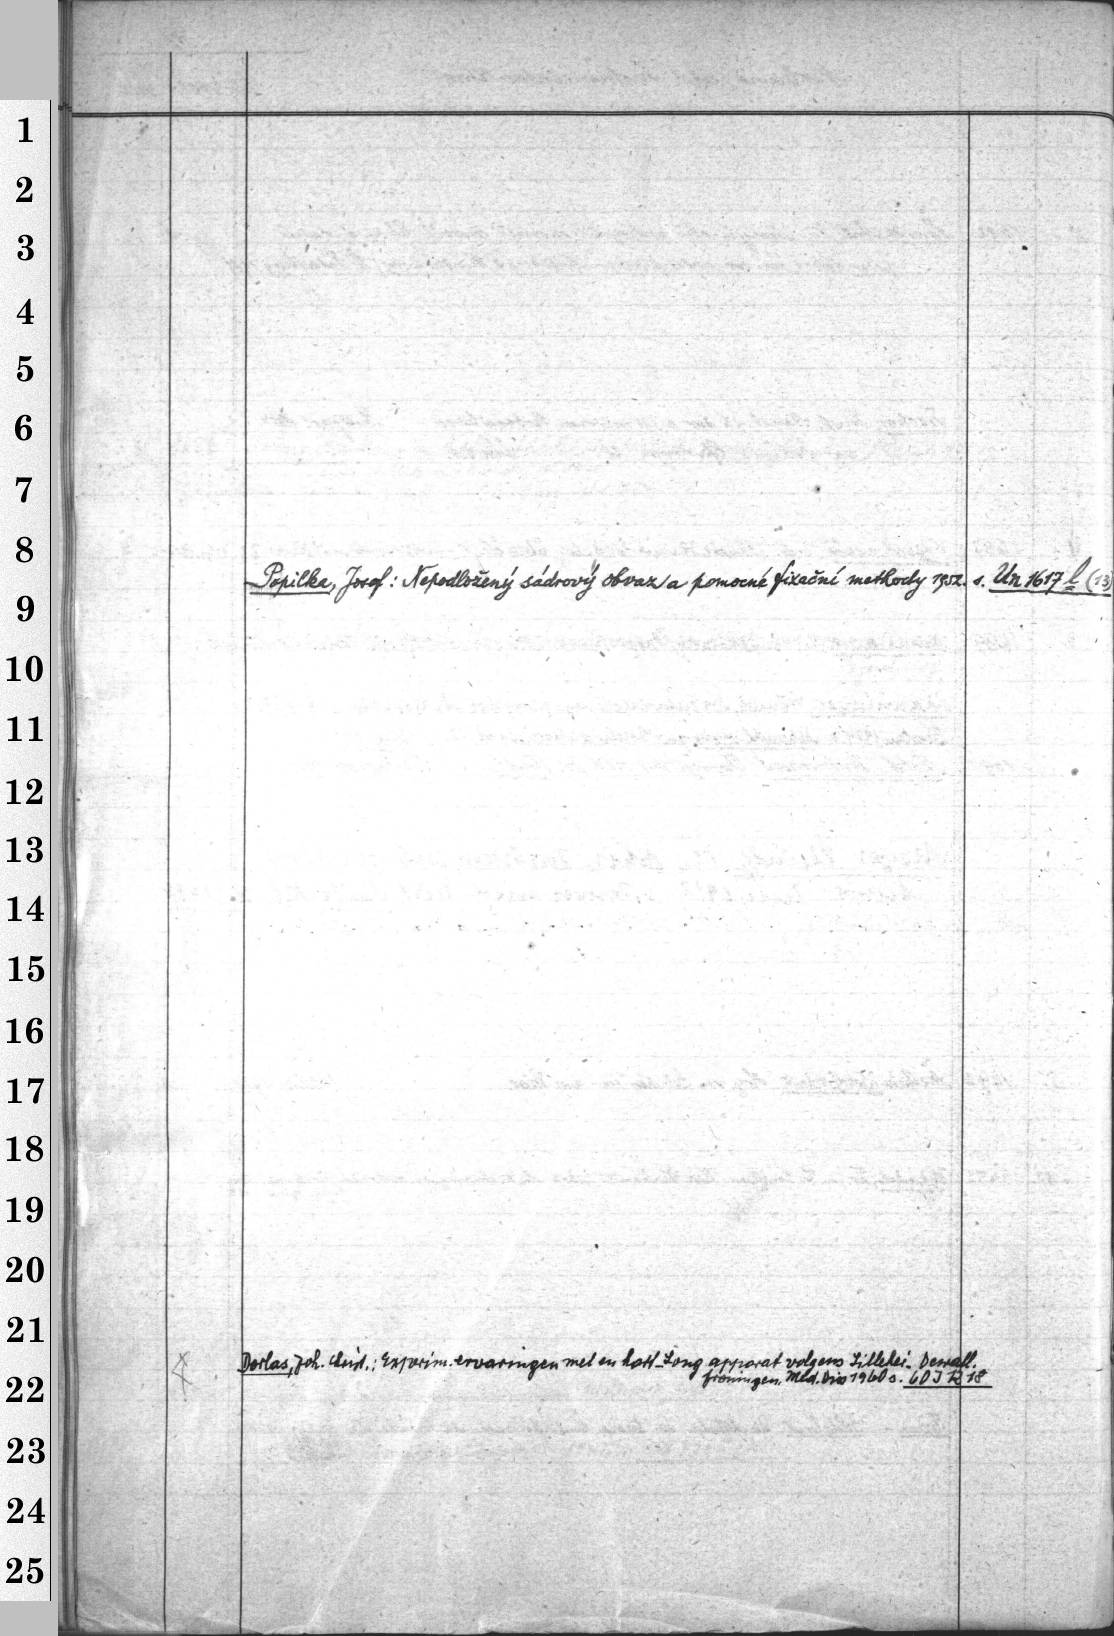 1
2
3
4
5
6
7
8
Popilka, Josef: Nepodložený sádrový obvaz a pomocné fixační methody 1952. s. Un 1617 l (13)
9
10
11
12
13
14
15
16
17
18
19
20
21
Dorlas, Joh. Christ.: Experim. ervaringen met en hart-Long apparat volgens Lillehei-Dewall.
22
Groningen, Med. Diss 1960 s. 60 J
23
24
25